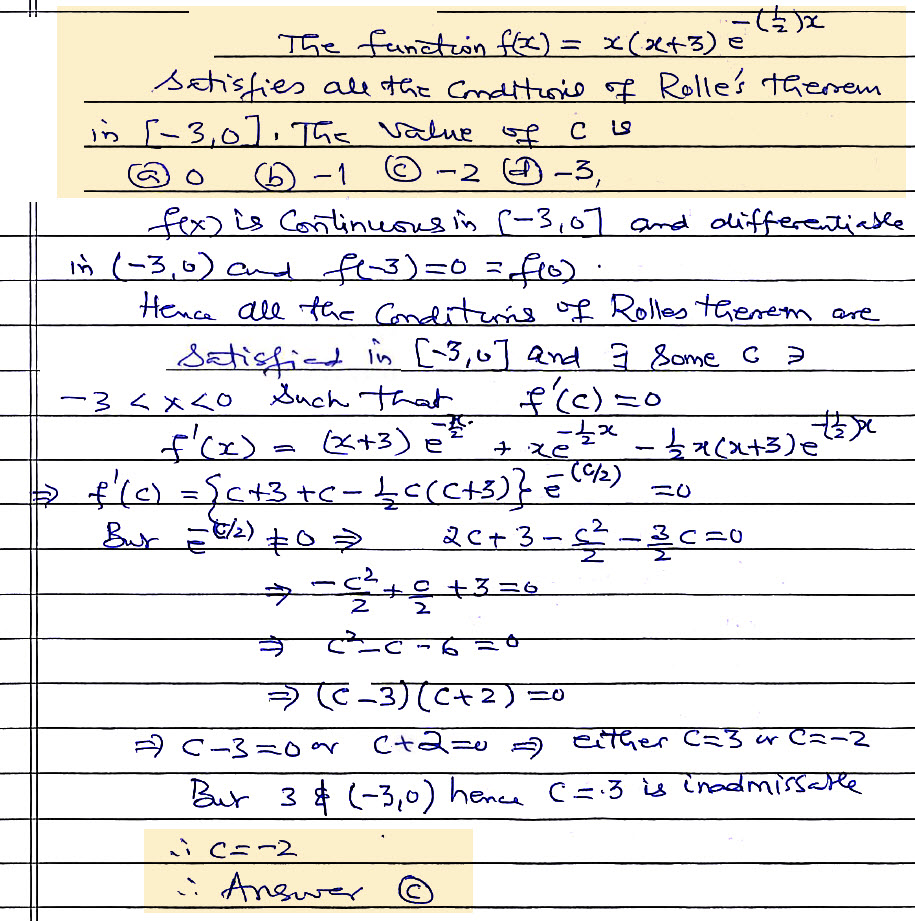 The function f(x) = x(x+3) e^{-(1/2)x}
satisfies all the conditions of Rolle's theorem
in [-3,0]. The value of c is
(a) 0 (b) -1 (c) -2 (d) -3,
f(x) is continuous in [-3,0] and differentiable
in (-3,0) and f(-3)=0 = f(0).
Hence all the conditions of Rolles theorem are
satisfied in [-3,0] and ∃ some c ∋
-3 < x < 0 such that f'(c) = 0
f'(x) = (x+3) e^{-x/2} + x e^{-1/2 x} - 1/2 x(x+3) e^{-(1/2)x}
⇒ f'(c) = {c+3+c - 1/2 c(c+3)} e^{-(c/2)} = 0
But e^{-(c/2)} ≠ 0 ⇒ 2c+3 - c²/2 - 3/2 c = 0
⇒ -c²/2 + c/2 + 3 = 0
⇒ c² - c - 6 = 0
⇒ (c-3)(c+2) = 0
⇒ c-3=0 or c+2=0 ⇒ either c=3 or c=-2
But 3 ∉ (-3,0) hence c=3 is inadmissable
∴ c = -2
∴ Answer (c)